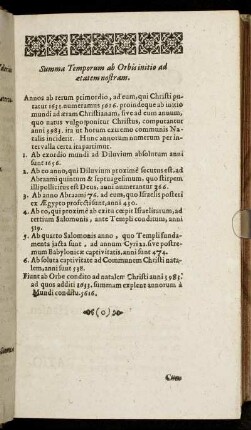 Summa Temporum ab Orbis initio ad
ætatem nostram.
Annos ab rerum primordio, ad eum, qui Christi pu-
tatur 1633. numeramus 5616. proindeque ab initio
mundi ad æram Christianam, sive ad eum annum,
quo natus vulgo ponitur Christus, computantur
anni 3983. ita ut horum extremo communis Na-
talis incidat. Hunc annorum numerum per in-
tervalla certa impartimur.
1. Ab exordio mundi ad Diluvium absolutum anni
sunt 1656.
2. Ab eo anno, qui Diluvium proximè secutus est, ad
Abraami quintum & septuagesimum, quo stipem
illi pollicitus est Deus, anni numerantur 366.
3. Ab anno Abraami 76. ad eum, quo Israëlis posteri
ex Ægypto profecti sunt, anni 430.
4. Ab eo, qui proximè ab exitu cœpit Israëlitarum, ad
tertium Salomonis, ante Templi conditum, anni
519.
5. Ab quarto Salomonis anno, quo Templi funda-
menta jacta sunt, ad annum Cyri 22. sive postre-
mum Babylonicæ captivitatis, anni sunt 474.
6. Ab soluta captivitate ad Communem Christi nata-
lem, anni sunt 538.
Fiunt ab Orbe condito ad natalem Christi anni 3983.
ad quos additi 1633. summam explent annorum à
Mundi conditu. 5616.
(o)